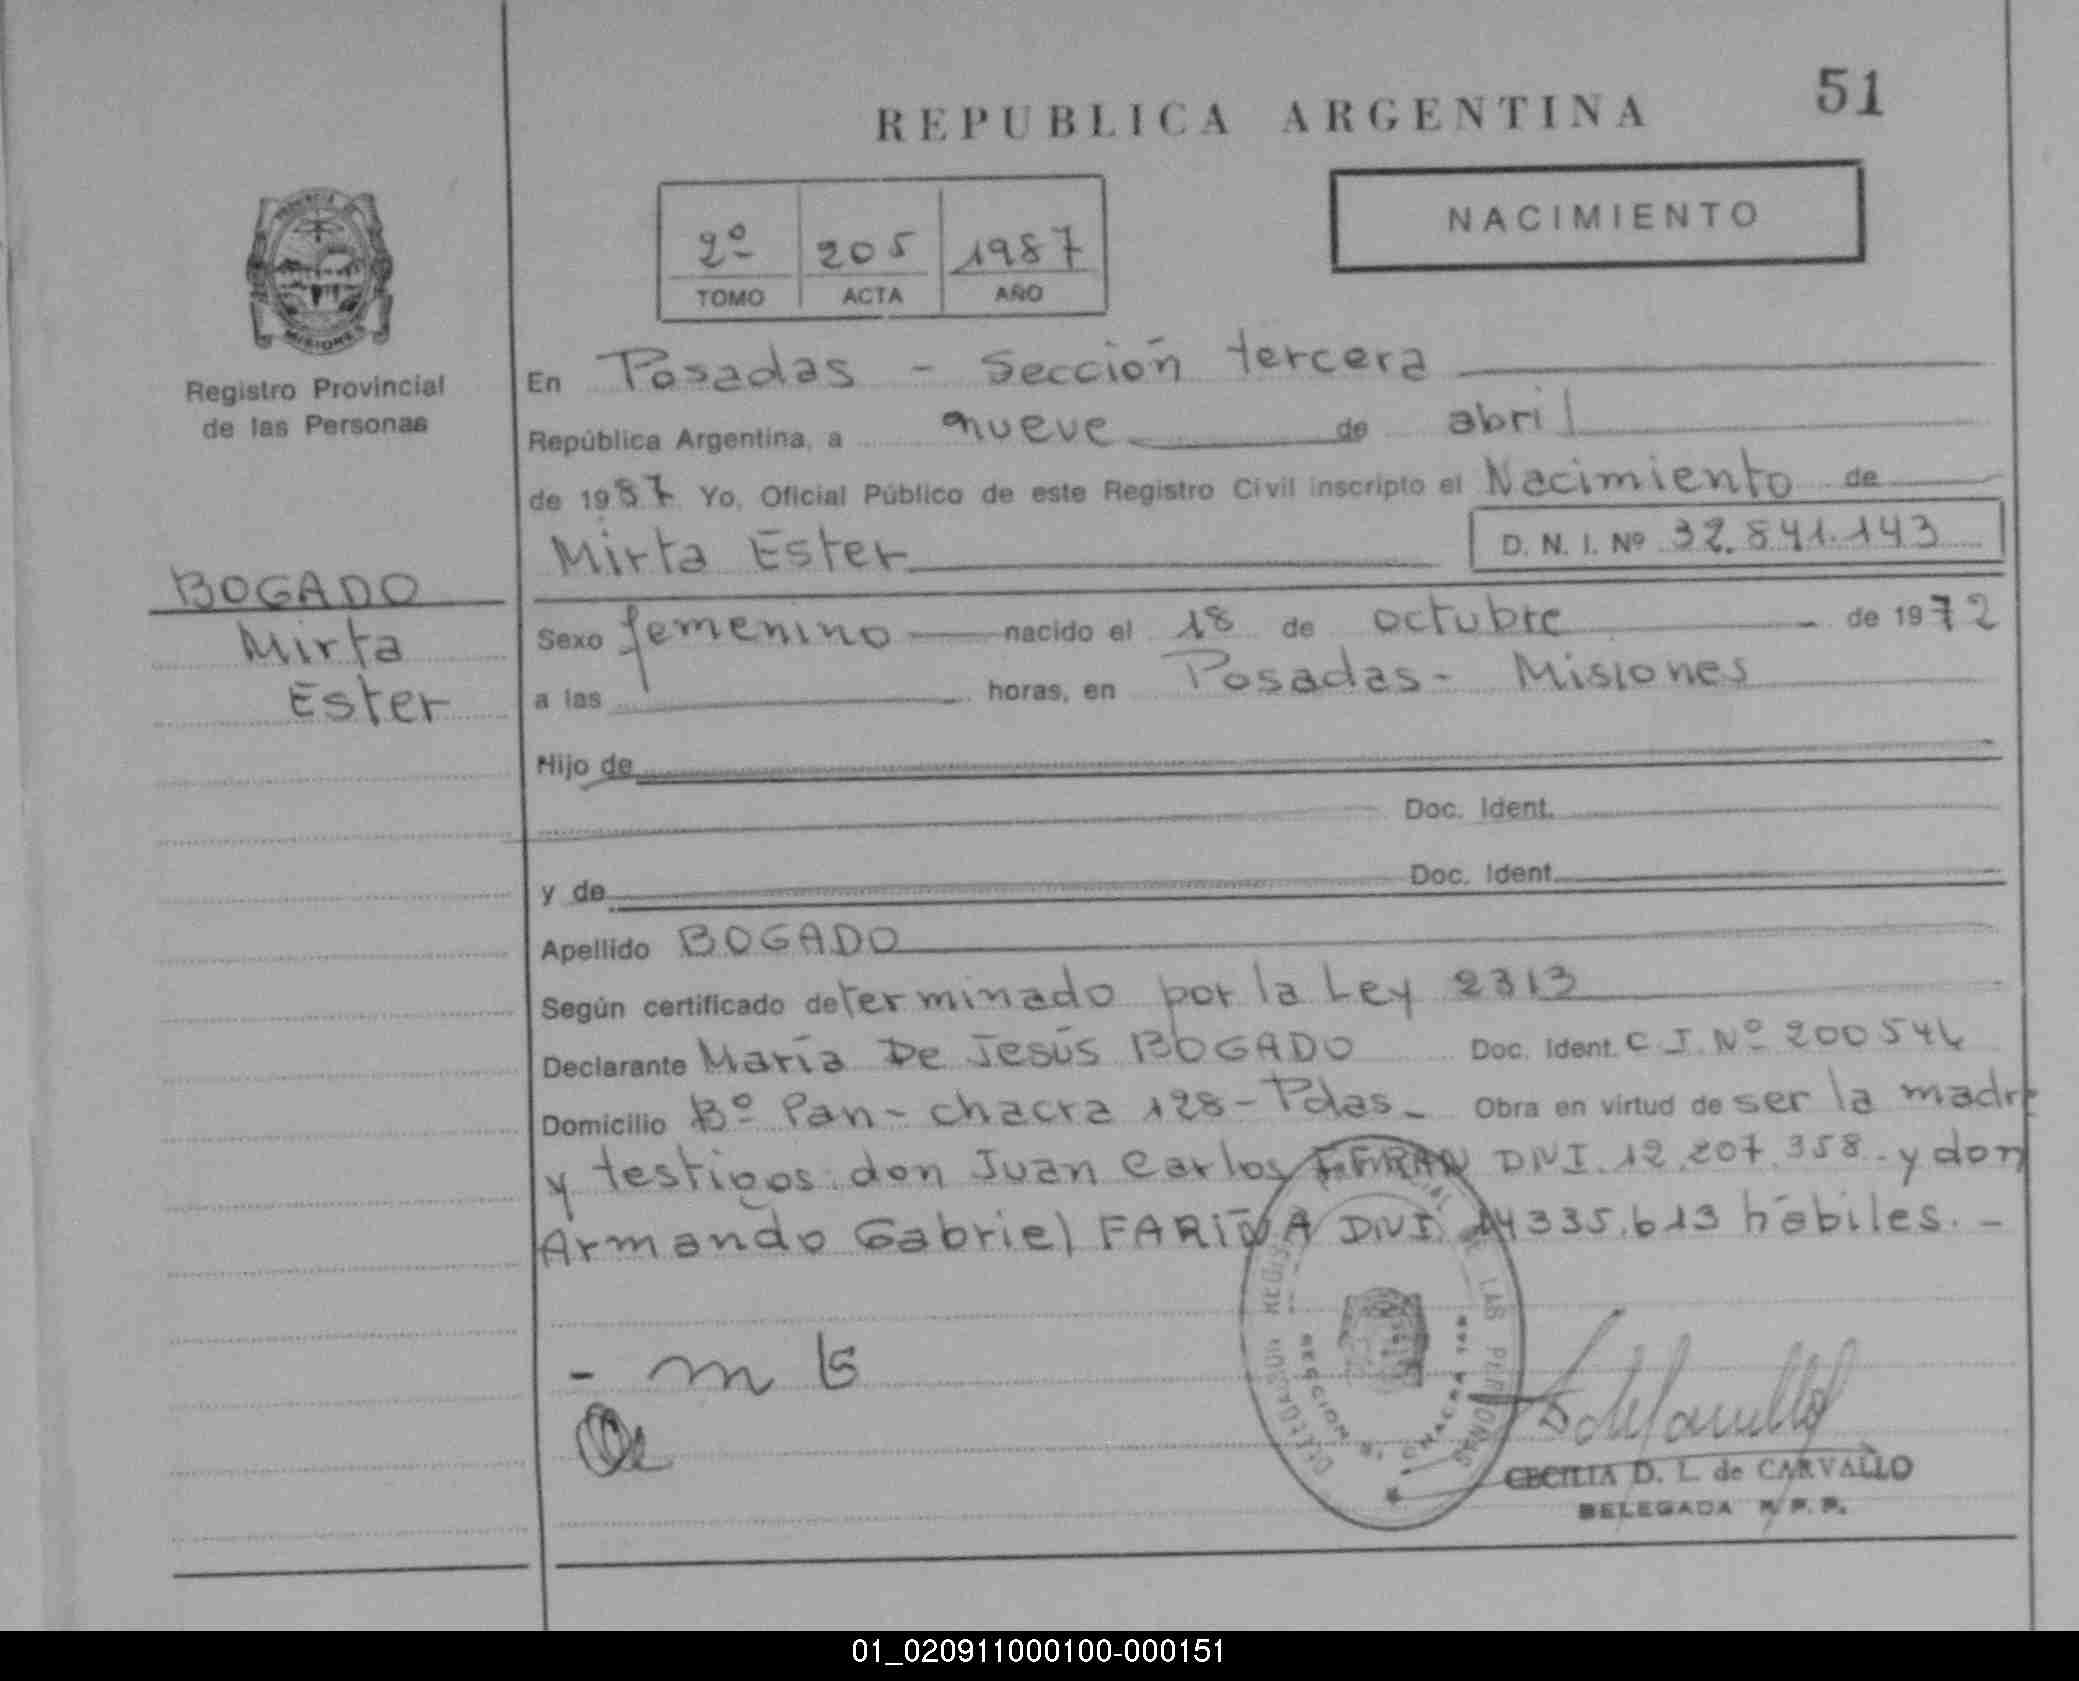 51
REPUBLICA ARGENTINA
NACIMIENTO
2º 205 1987
TOMO ACTA AÑO
PROVINCIA
MISIONES
Registro Provincial
de las Personas
BOGADO
Mirta
Ester
En Posadas - Sección tercera
República Argentina, a nueve de abril
de 1987 Yo, Oficial Público de este Registro Civil inscripto el Nacimiento de
Mirta Ester D. N. I. Nº 32.841.143
Sexo femenino nacido el 18 de octubre de 1972
a las horas, en Posadas - Misiones
Hijo de
Doc. Ident.
y de Doc. Ident.
Apellido BOGADO
Según certificado determinado por la Ley 2313
Declarante María De Jesús BOGADO Doc. Ident. C I. Nº 200546
Domicilio Bº Pan - chacra 128 - Pdas. Obra en virtud de ser la madre
y testigos: don Juan Carlos DNI. 12.207.358. y don
Armando Gabriel FARIÑA DNI. 14335.613 hábiles. -
- m B
DELEGACION REGIS LAS PERSONAS
SECCION CHACRA
CECILIA D. L. de CARVALLO
DELEGADA R. P. P.
01_020911000100-000151